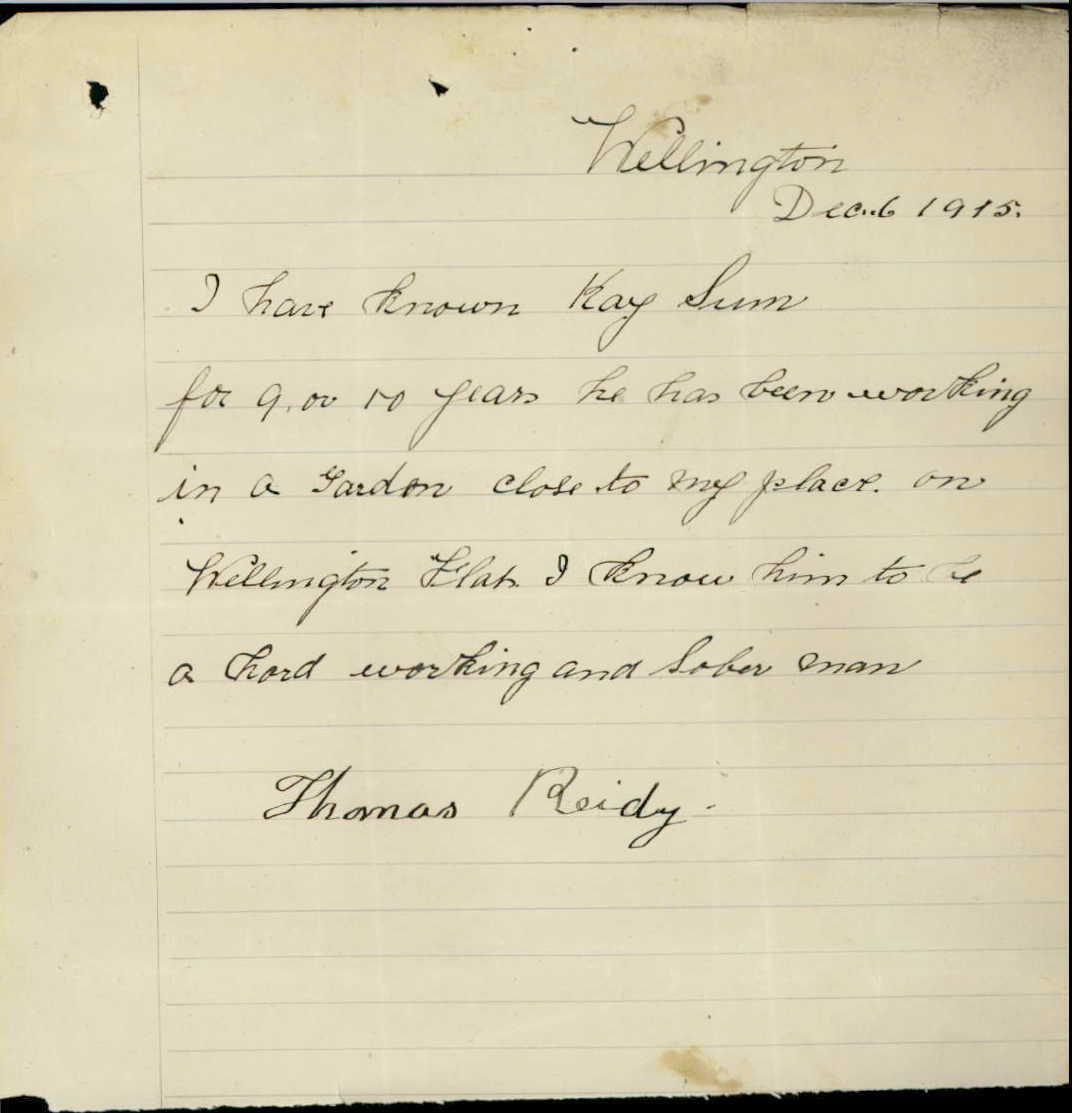 Wellington
Dec. 6 1915.
I have known Kay Sum
for 9, or 10 years he has been working
in a Garden close to my place. on
Wellington Flat. I know him to be
a hard working and Sober man
Thomas Reidy.